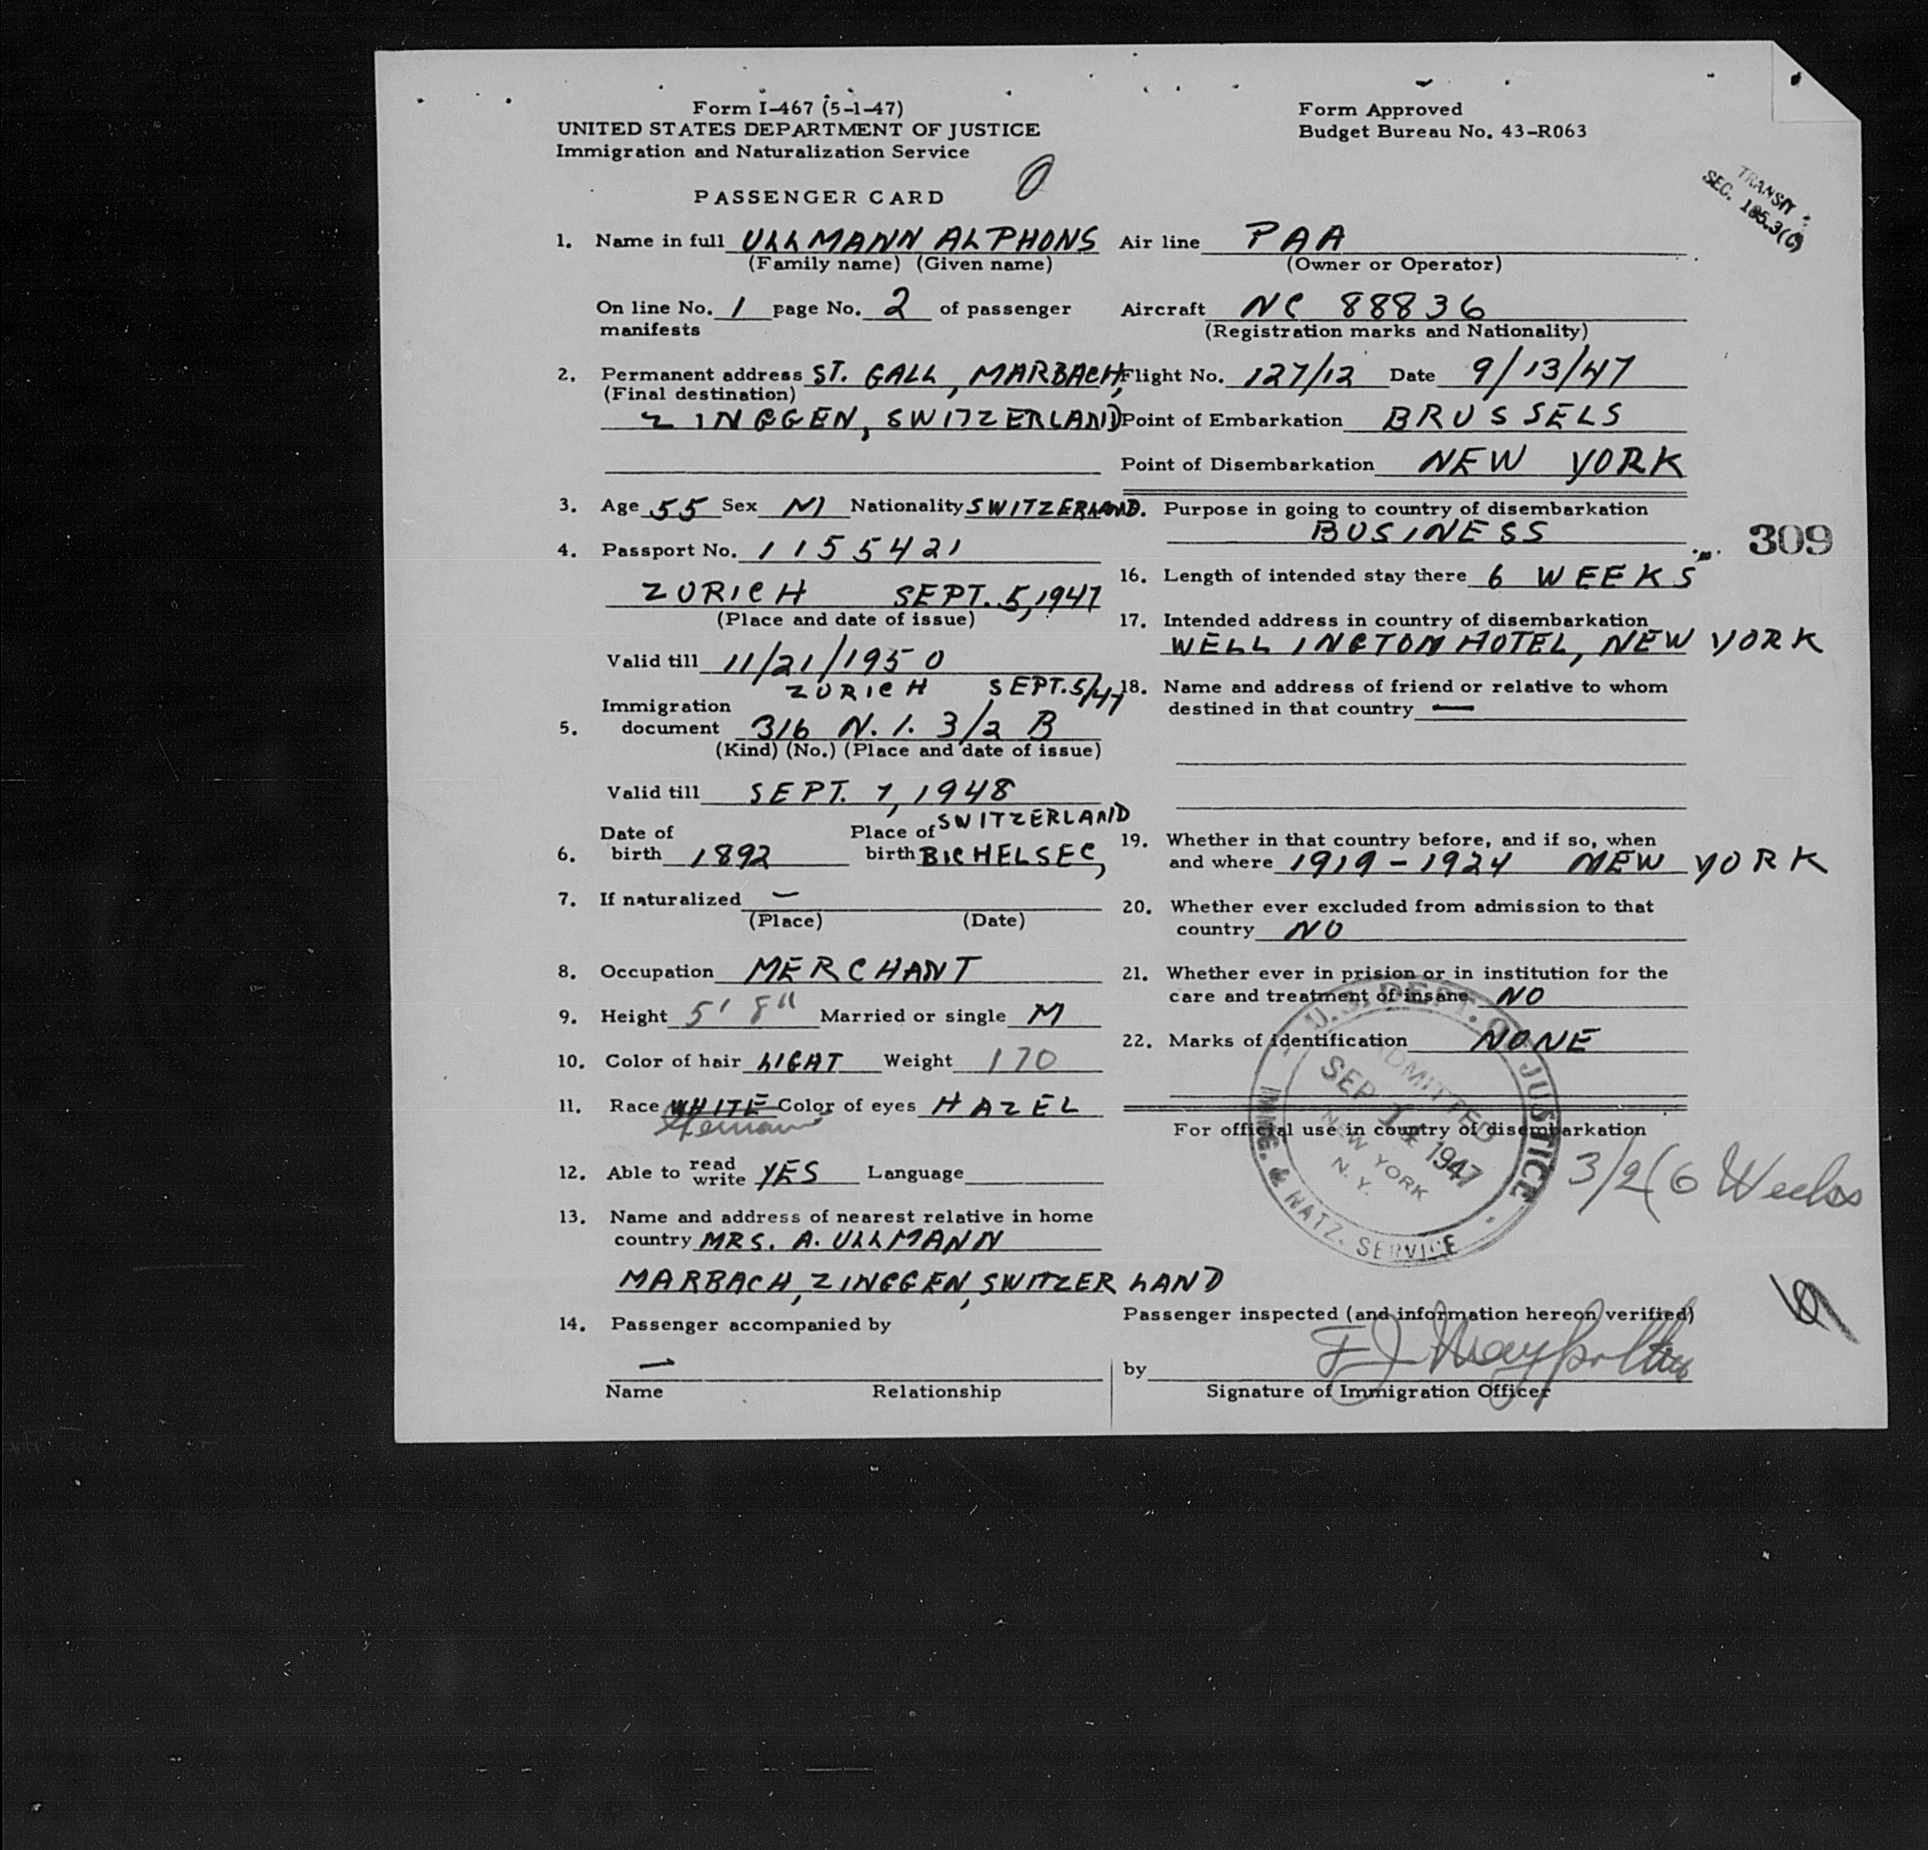 Form I-467 (5-1-47)
UNITED STATES DEPARTMENT OF JUSTICE
Immigration and Naturalization Service
PASSENGER CARD
O
Form Approved
Budget Bureau No. 43-R063
TRANSIT
SEC. 185.3(c)
1. Name in full ULLMANN ALPHONS
(Family name) (Given name)
On line No. 1 page No. 2 of passenger
manifests
2. Permanent address ST. GALL, MARBACH,
(Final destination)
ZINGGEN, SWITZERLAND
3. Age 55 Sex M Nationality SWITZERLAND
4. Passport No. 1155421
ZURICH SEPT. 5, 1947
(Place and date of issue)
Valid till 11/21/1950
ZURICH SEPT. 5/47
Immigration
5. document 316 N.I. 3/2 B
(Kind) (No.) (Place and date of issue)
Valid till SEPT. 7, 1948
SWITZERLAND
Date of Place of
6. birth 1892 birth BICHELSEC,
7. If naturalized —
(Place) (Date)
8. Occupation MERCHANT
9. Height 5' 8" Married or single M
10. Color of hair LIGHT Weight 170
11. Race WHITE Color of eyes HAZEL
German
12. Able to read write YES Language
13. Name and address of nearest relative in home
country MRS. A. ULLMANN
MARBACH, ZINGGEN, SWITZERLAND
14. Passenger accompanied by
—
Name Relationship
Air line PAA
(Owner or Operator)
Aircraft NC 88836
(Registration marks and Nationality)
Flight No. 127/12 Date 9/13/47
Point of Embarkation BRUSSELS
Point of Disembarkation NEW YORK
. Purpose in going to country of disembarkation
BUSINESS
309
16. Length of intended stay there 6 WEEKS
17. Intended address in country of disembarkation
WELLINGTON HOTEL, NEW YORK
18. Name and address of friend or relative to whom
destined in that country —
19. Whether in that country before, and if so, when
and where 1919-1924 NEW YORK
20. Whether ever excluded from admission to that
country NO
21. Whether ever in prision or in institution for the
care and treatment of insane NO
22. Marks of identification NONE
For official use in country of disembarkation
U.S. DEPT. OF JUSTICE
IMMIG. & NATZ. SERVICE
ADMITTED
SEP 14 1947
NEW YORK
N. Y.
3/2(6 Weeks
Passenger inspected (and information hereon verified)
by
Signature of Immigration Officer